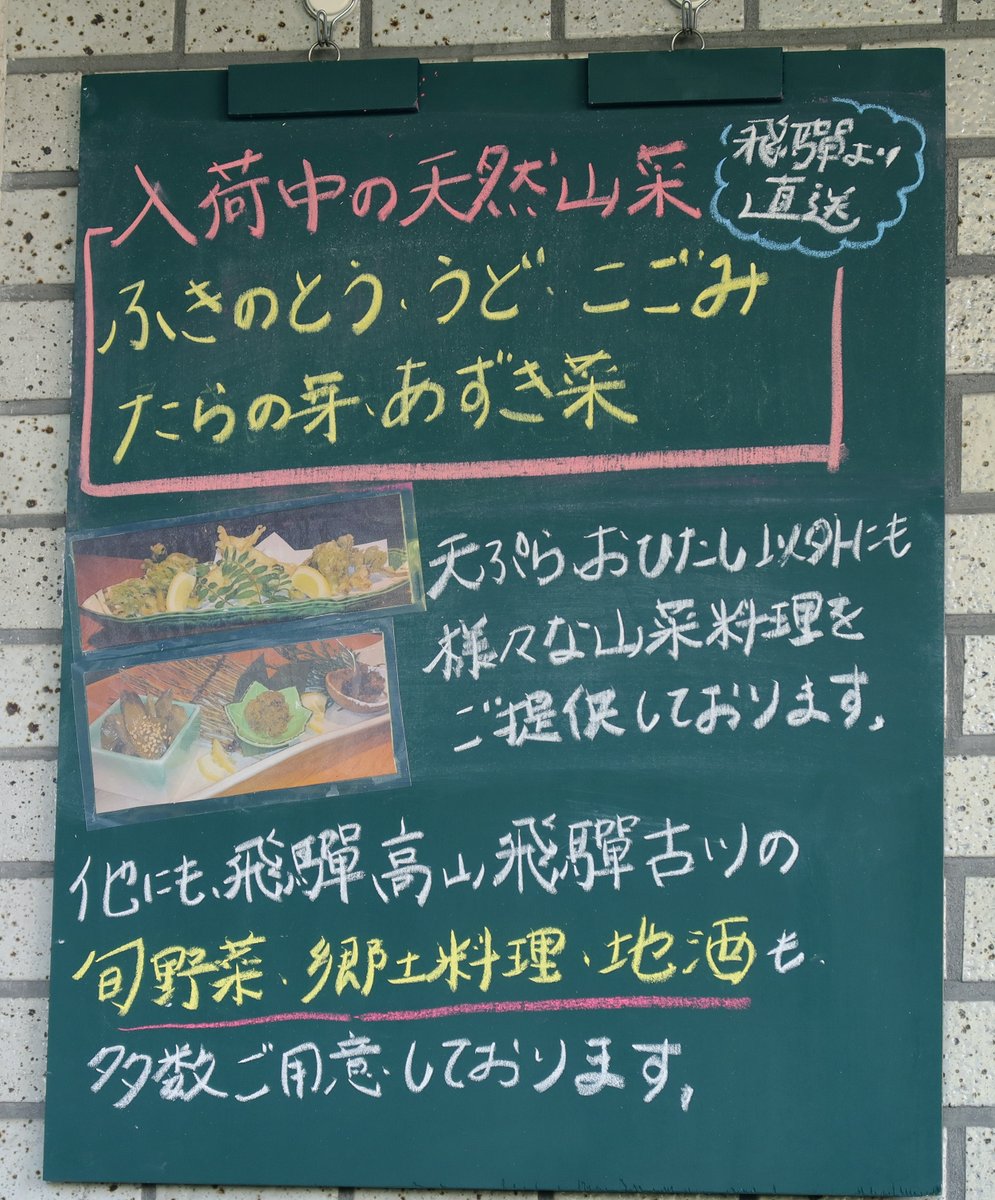 入荷中の天然山菜
飛騨より
直送
ふきのとう、うど、こごみ
たらの芽、あずき菜
天ぷら、おひたし以外にも
様々な山菜料理を
ご提供しております。
他にも、飛騨高山、飛騨古川の
旬野菜、郷土料理、地酒も
多数ご用意しております。